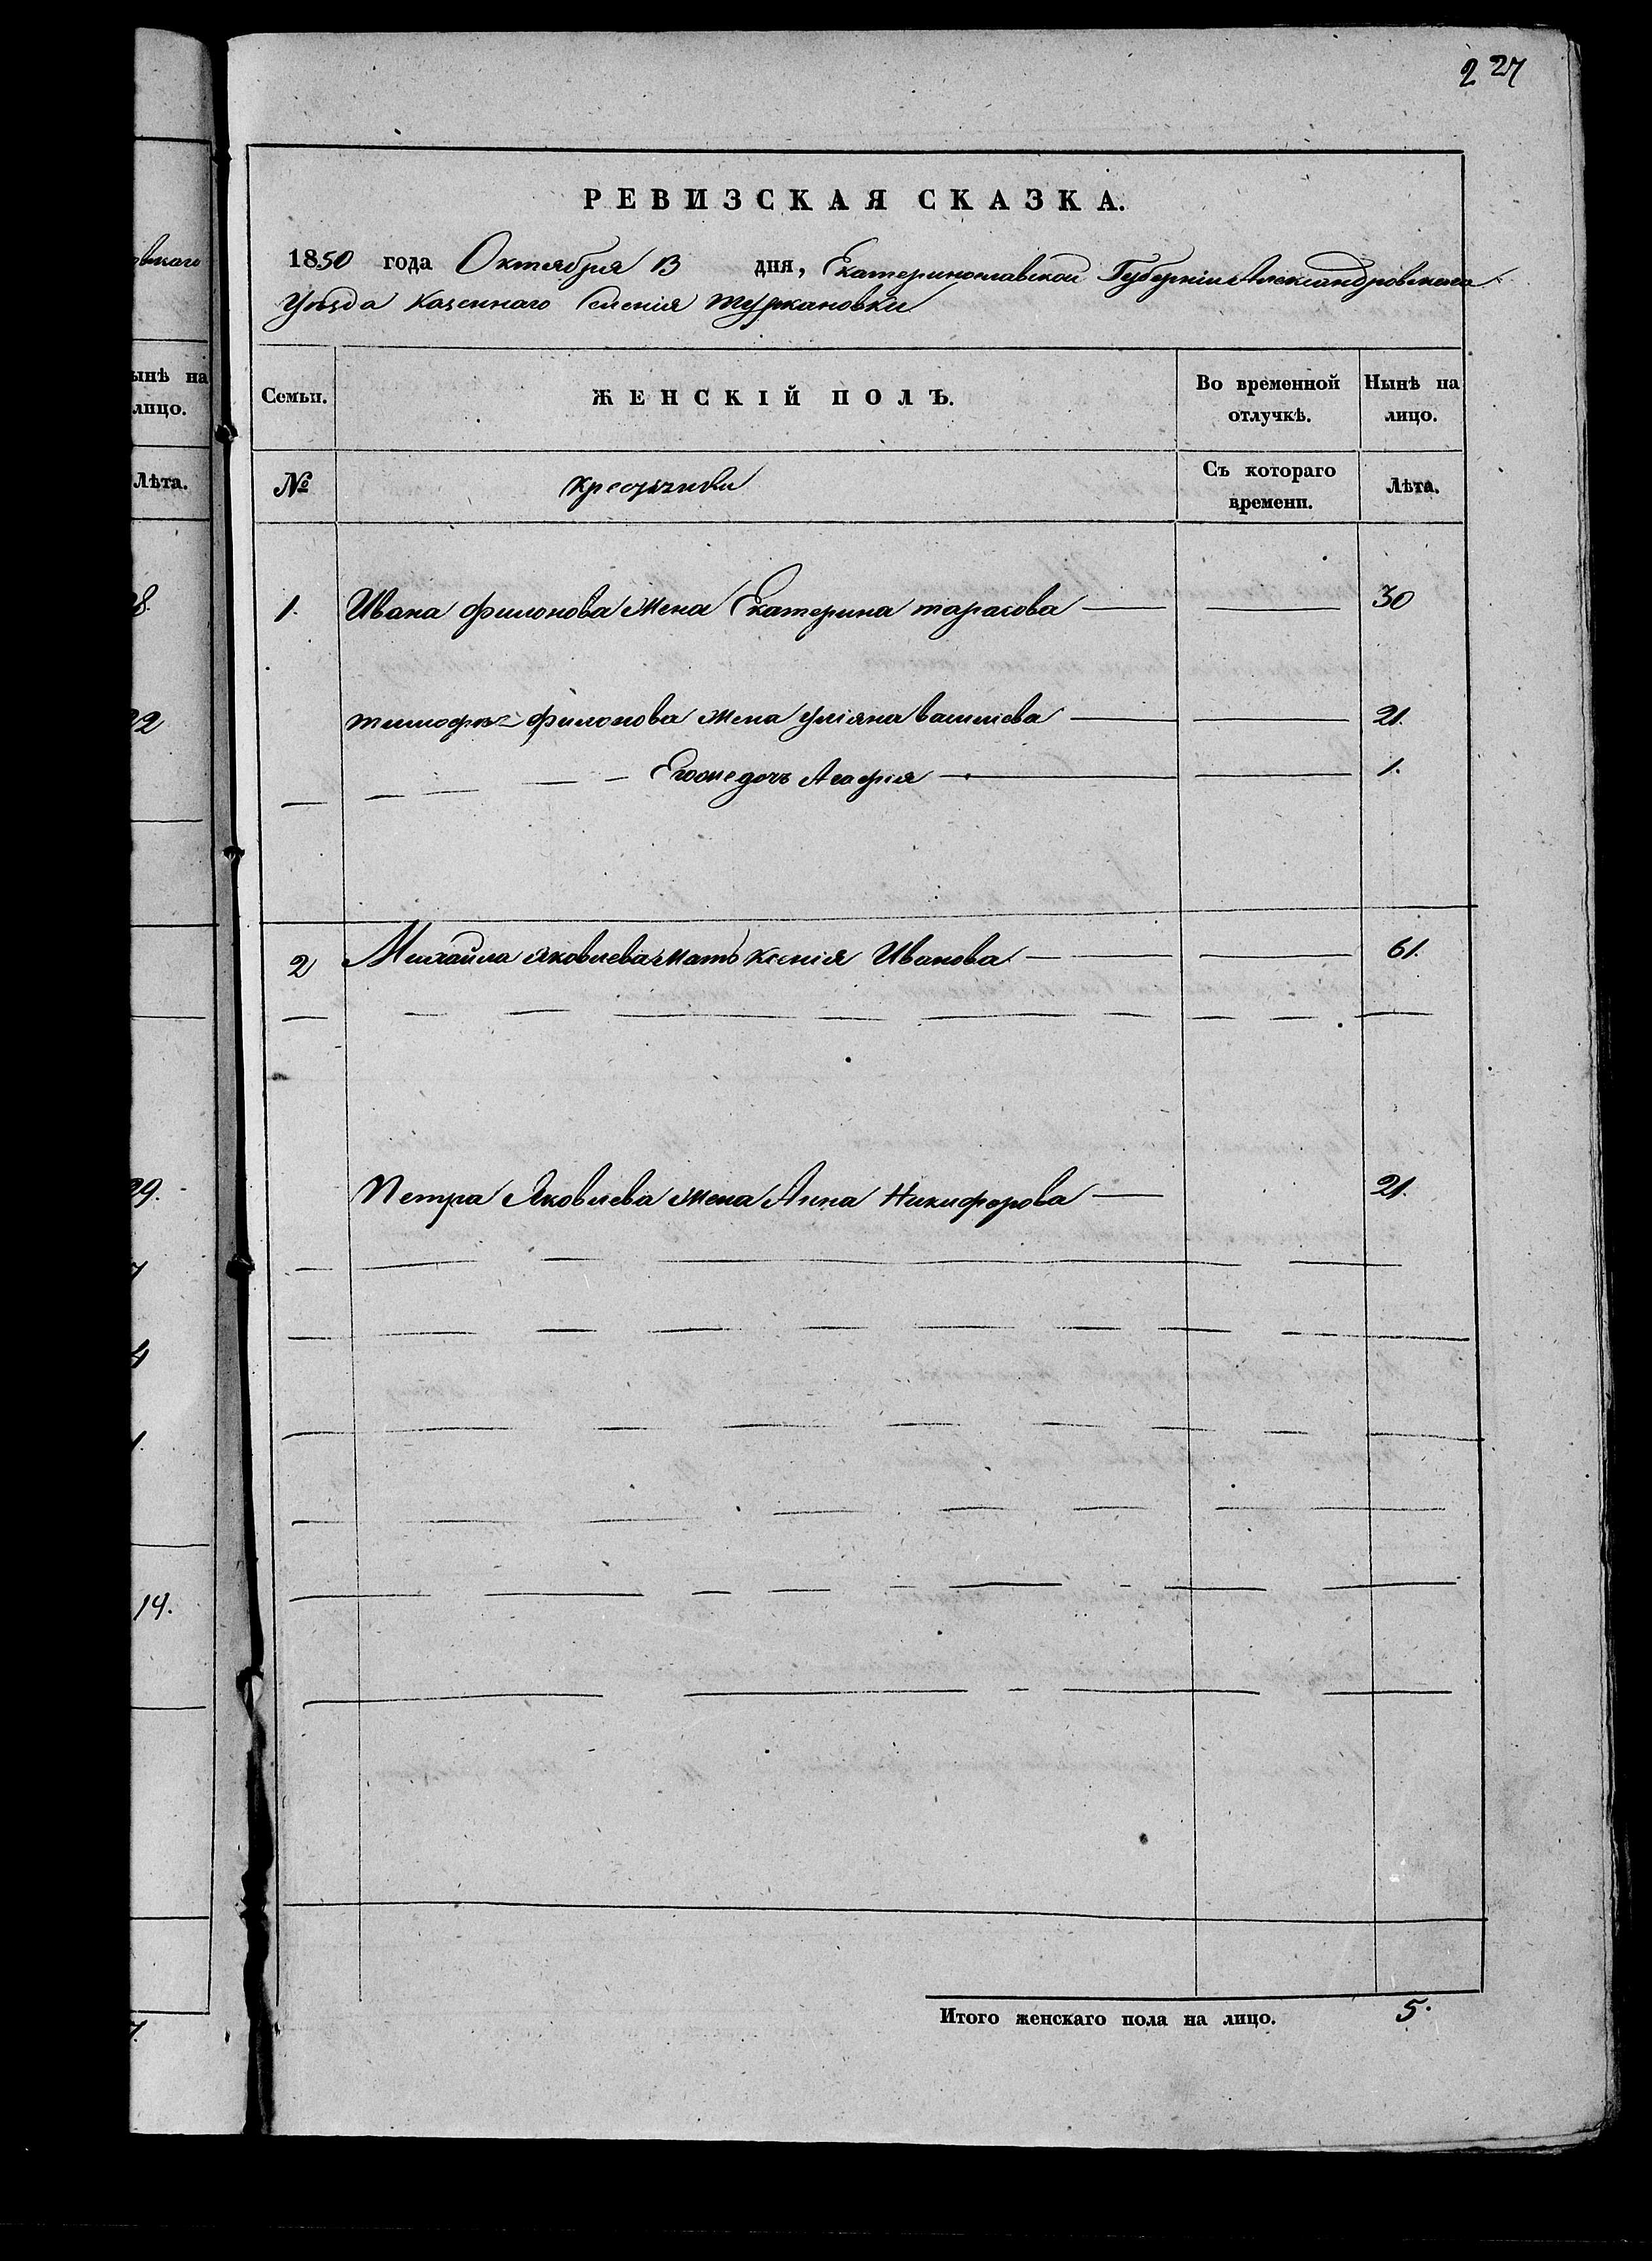 227
РЕВИЗСКАЯ СКАЗКА.
1850 года Октября 13 дня, Екатеринославской Губерніи Александровскаго
Уѣзда Казеннаго Селенія Туркановки
Семьи. ЖЕНСКІЙ ПОЛЪ. Во временной отлучкѣ. Нынѣ на лицо.
№ Крестьянки Съ котораго времени. Лѣта.
1. Ивана Филонова жена Екатерина Тарасова 30
Тимофѣ- Филонова жена Уліяна Васильева 21.
Егоже дочь Агафія 1.
2 Михайла Яковлева мать Ксенія Иванова 61.
Петра Яковлева жена Анна Никифорова 21.
Итого женскаго пола на лицо. 5.
ынѣ на
лицо.
Лѣта.
19.